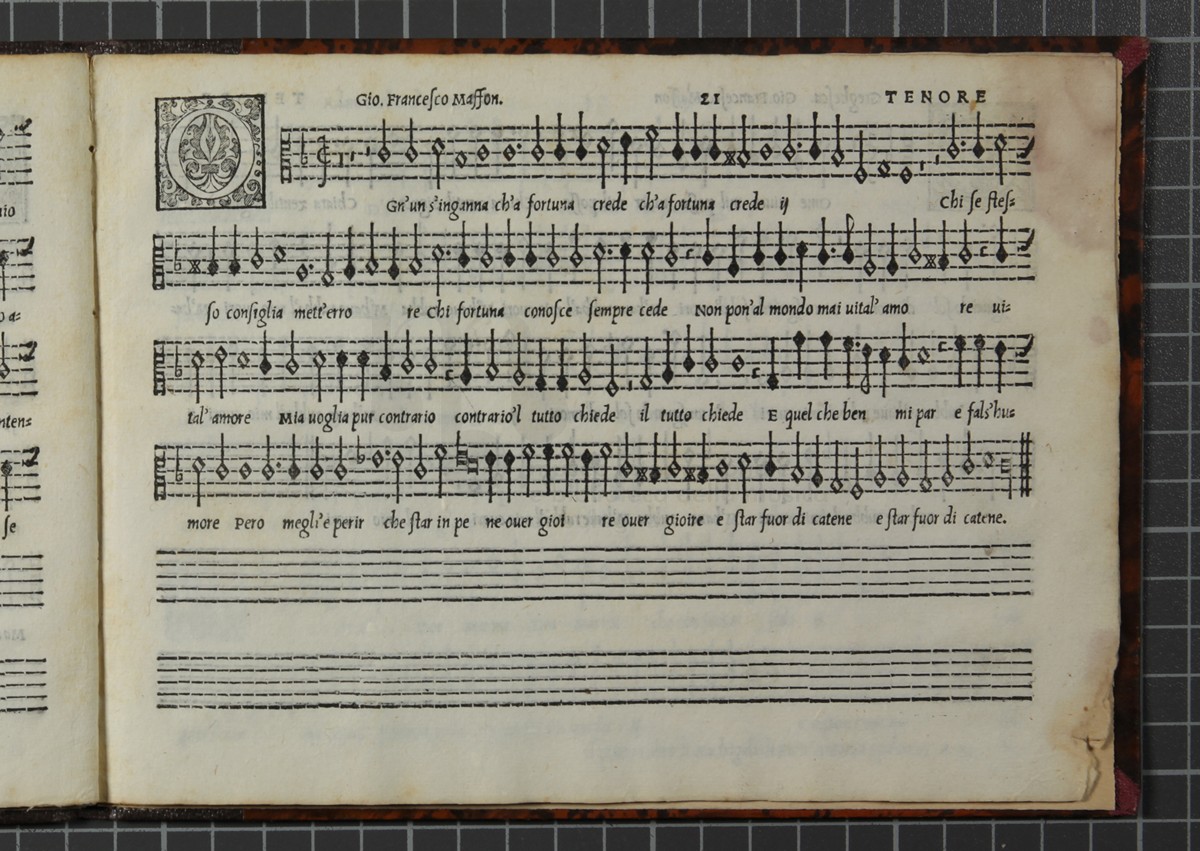 Gio. Franceſco Maſſon. 21 TENORE
O
Gn'un s'inganna ch'a fortuna crede ch'a fortuna crede ij Chi ſe ſteſ=
ſo conſiglia mett'erro re Chi fortuna conoſce ſempre cede Non pon'al mondo mai uital' amo re ui=
tal' amore Mia uoglia pur contrario contrario'l tutto chiede il tutto chiede E quel che ben mi par e falſ'hu=
more Pero megli'e perir che ſtar in pe ne ouer gioi re ouer gioire e ſtar fuor di catene e ſtar fuor di catene.